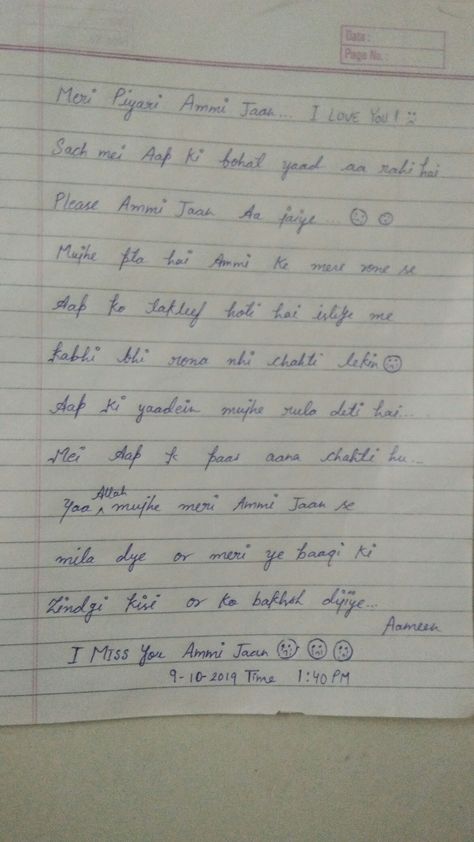 Date :
Page No. :
Meri Piyari Ammi Jaan... I LOVE YOU!
Sach mei Aap Ki bohat yaad aa rahi hai
Please Ammi Jaan Aa jaiye...
Mujhe pta hai Ammi Ke mere rone se
Aap Ko takleef hoti hai isliye me
kabhi bhi rona nhi chahti lekin
Aap Ki yaadein mujhe rula deti hai...
Mei Aap K paas aana chahti hu...
Yaa Allah mujhe meri Ammi Jaan se
mila dye or meri ye baaqi ki
Zindgi kisi or ko bakhsh dijiye...
Aameen
I MISS You Ammi Jaan
9-10-2019 Time 1:40 PM